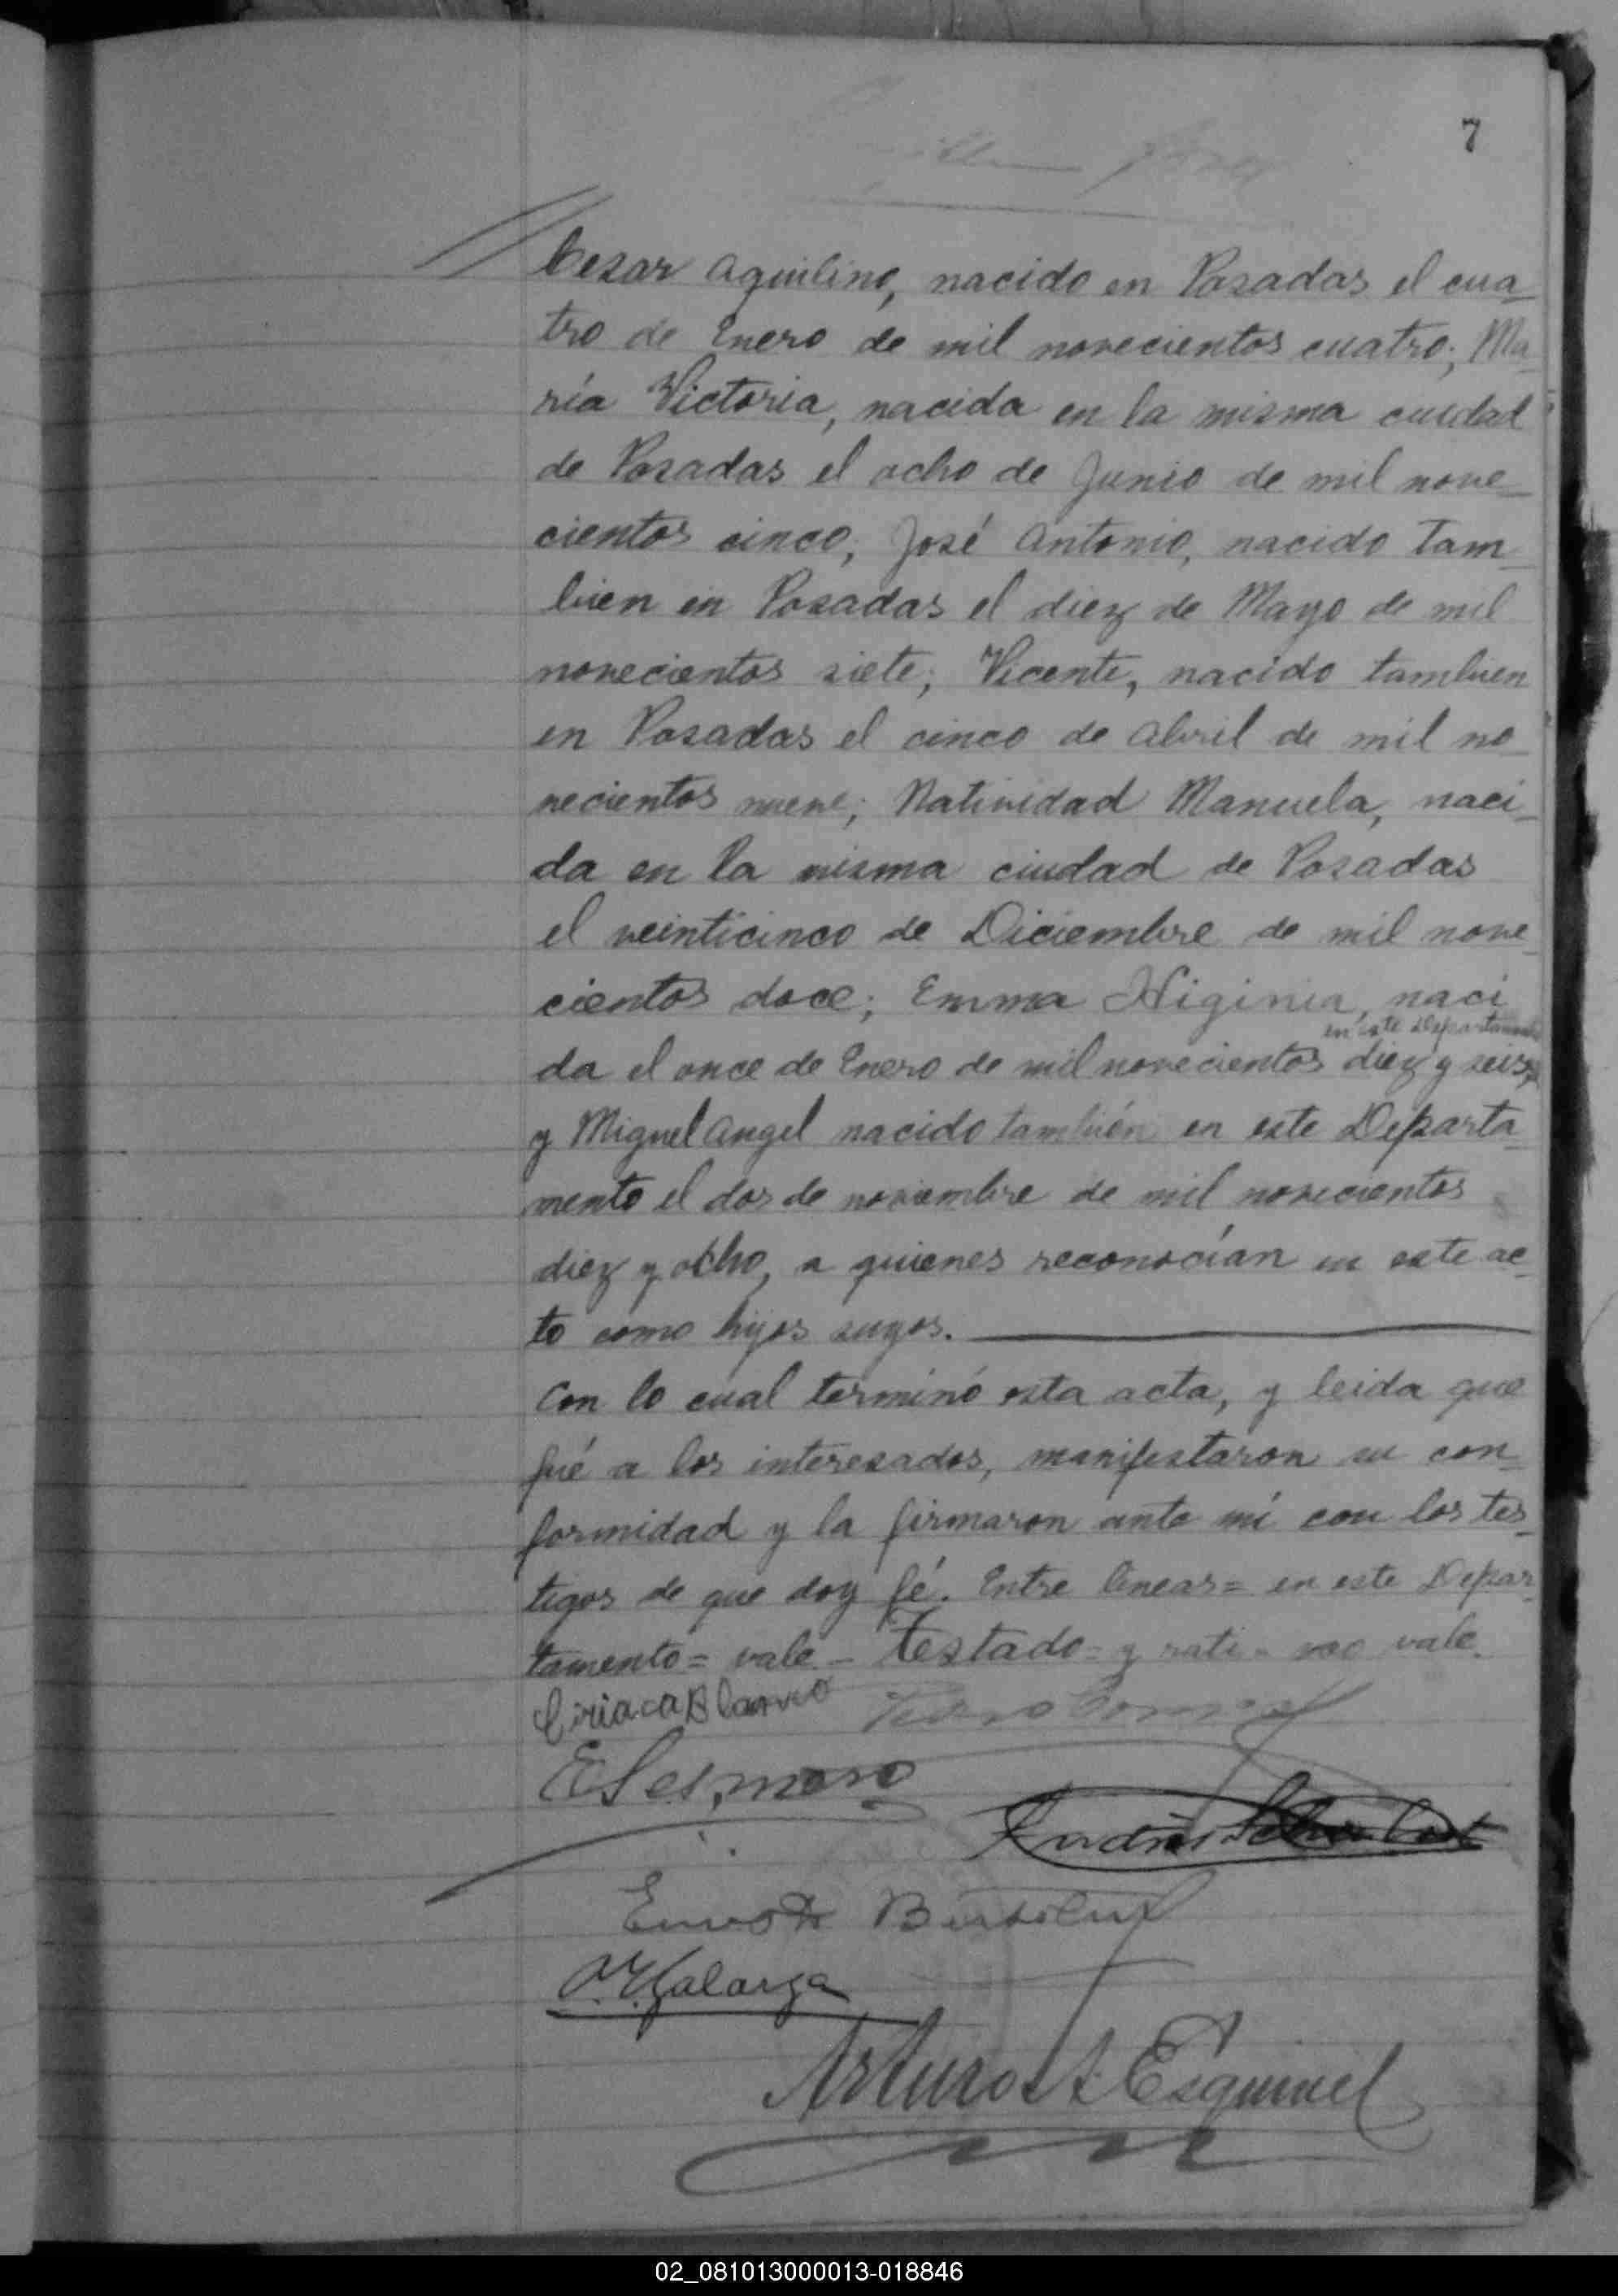 7
Cesar Aquilino, nacido en Posadas el cua-
tro de Enero de mil novecientos cuatro; Ma-
ría Victoria, nacida en la misma ciudad
de Posadas el ocho de Junio de mil nove-
cientos cinco; José Antonio, nacido tam-
bien en Posadas el diez de Mayo de mil
novecientos siete; Vicente, nacido tambien
en Posadas el cinco de Abril de mil no-
vecientos nueve; Natividad Manuela, naci-
da en la misma ciudad de Posadas
el veinticinco de Diciembre de mil nove-
cientos doce; Emma Higinia, naci
en este Departamento
da el once de Enero de mil novecientos diez y seis,
y Miguel Angel nacido también en este Departa-
mento el dos de noviembre de mil novecientos
diez y ocho, a quienes reconocían en este ac-
to como hijos suyos.
Con lo cual terminó esta acta, y leida que
fué a los interesados, manifestaron su con-
formidad y la firmaron ante mí con los tes-
tigos de que doy fé. Entre lineas = en este Depar-
tamento = vale - Testado = y rati = no vale.
Ciriaca Blanco
Arturo Esquivel
02_081013000013-018846